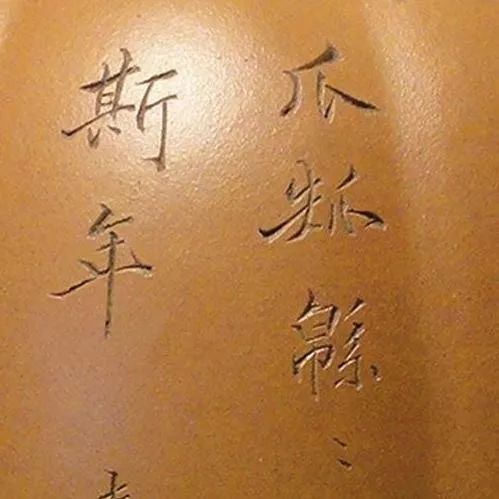 瓜瓞緜〻
斯年